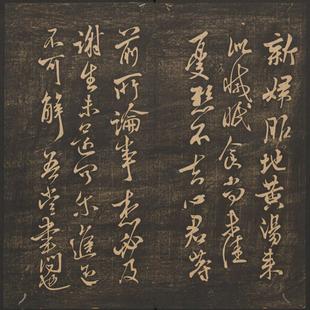 新婦服地黄湯來
似減眠食尚未佳
憂懸不去心君等
前所論事想必及
謝生未還何尔進退
不可解吾當書問也